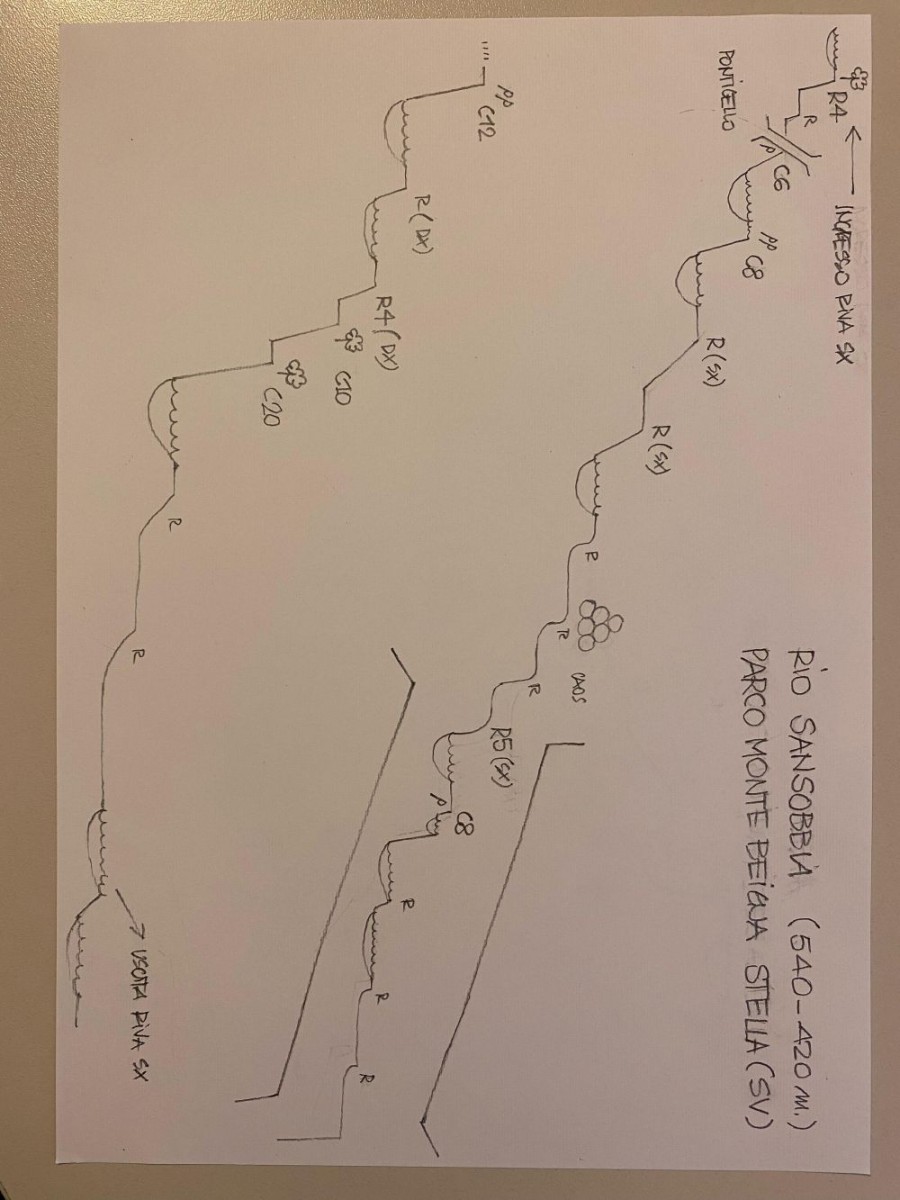 RIO SANSOBBIA (540-420 m.)
PARCO MONTE BEIGUA STELLA (SV)
INGRESSO RIVA SX
R4
R
PONTICELLO
C6
C8
R (SX)
R (SX)
R
R
CAOS
R
R5 (SX)
C8
R
R
R
C12
R (DX)
R4 (DX)
C10
C20
R
R
USCITA RIVA SX